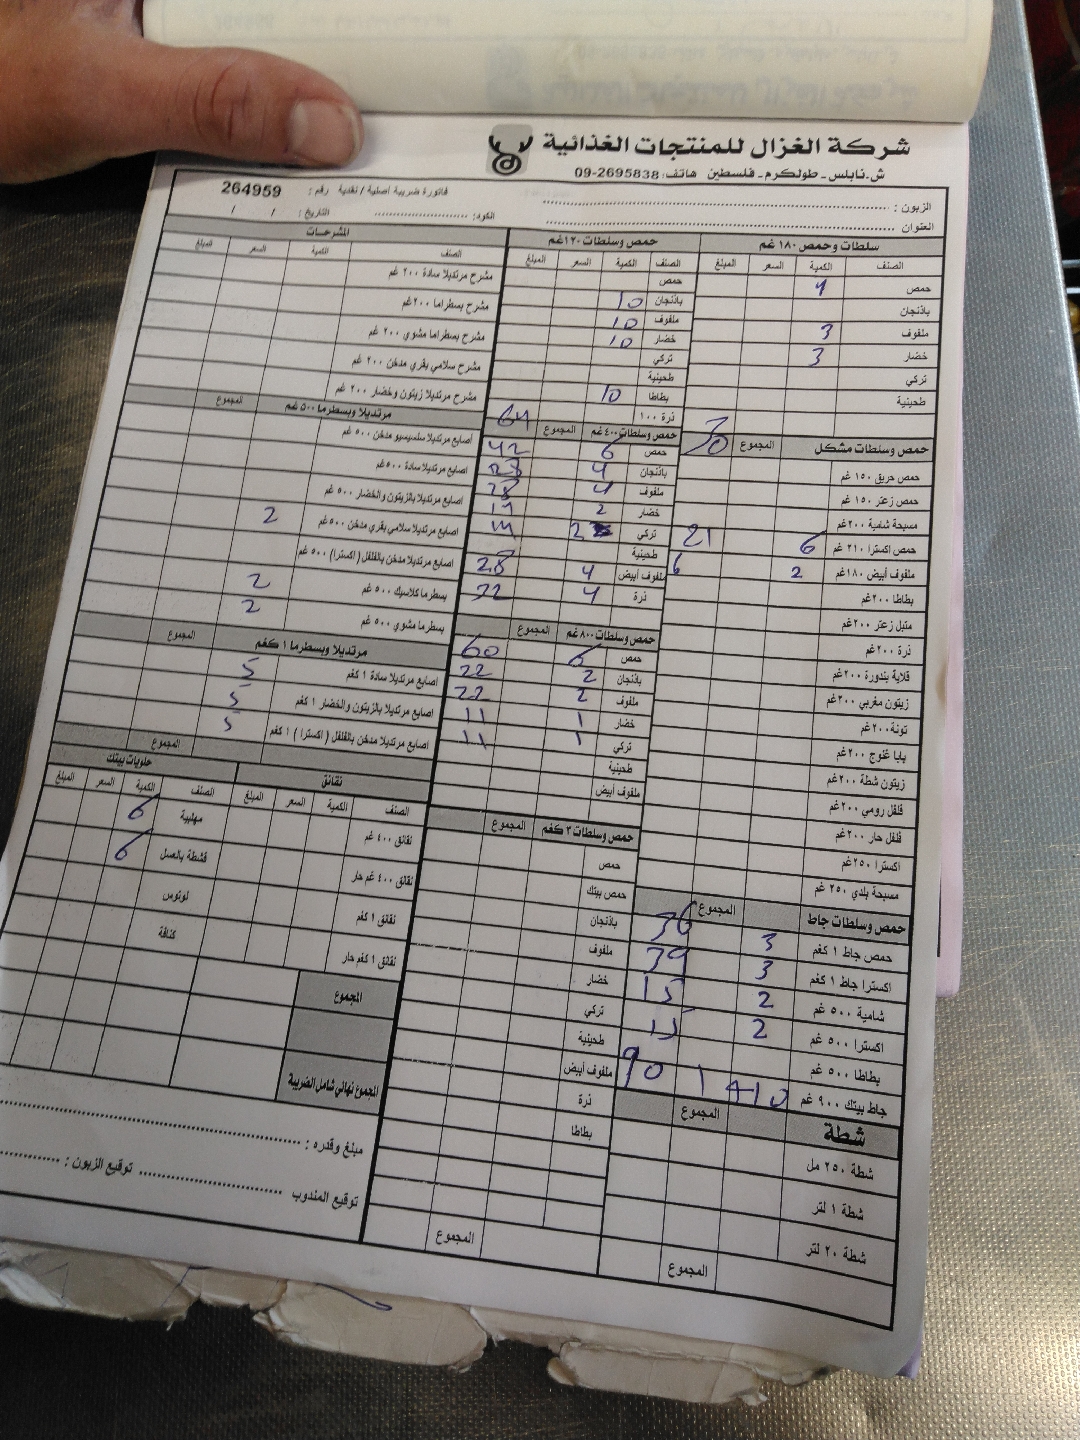 شركة الغزال للمنتجات الغذائية
ش.نابلس - طولكرم - فلسطين هاتف: 09-2695838
فاتورة ضريبة اصلية / نقدية رقم: 264959
الزبون:
العنوان
الكود: التاريخ: / /
سلطات وحمص ١٨٠ غم
الصنف الكمية السعر المبلغ
حمص 4
باذنجان
ملفوف 3
خضار 3
تركي
طحينية
حمص وسلطات مشكل المجموع 30
حمص حريق ١٥٠ غم
حمص زعتر ١٥٠ غم
مسبحة شامية ٢٠٠غم
حمص اكسترا ٢١٠ غم 6 21
ملفوف أبيض ١٨٠غم 2 6
بطاطا ٢٠٠غم
متبل زعتر ٢٠٠غم
ذرة ٢٠٠غم
قلاية بندورة ٢٠٠غم
زيتون مغربي ٢٠٠غم
تونة ٢٠٠غم
بابا غنوج ٢٠٠غم
زيتون شطة ٢٠٠غم
فلفل رومي ٢٠٠غم
فلفل حار ٢٠٠غم
اكسترا ٢٥٠غم
مسبحة بلدي ٢٥٠ غم
حمص وسلطات جاط المجموع 36
حمص جاط ١ كغم 3
اكسترا جاط ١ كغم 3 39
شامية ٥٠٠ غم 2 15
اكسترا ٥٠٠ غم 2 15
بطاطا ٥٠٠ غم
جاط بيتك ٩٠٠ غم 10 90
شطة المجموع
شطة ٢٥٠ مل
شطة ١ لتر
شطة ٢٠ لتر
المجموع
حمص وسلطات ١٢٠غم
الصنف الكمية السعر المبلغ
حمص
باذنجان 10
ملفوف 10
خضار 10
تركي
طحينية
بطاطا 10
ذرة ١٠٠ 64
حمص وسلطات ٤٠٠غم المجموع
حمص 6 42
باذنجان 4 28
ملفوف 4 28
خضار 2 14
تركي 2 14
طحينية
ملفوف أبيض 4 28
ذرة 4 32
حمص وسلطات ٨٠٠غم المجموع
حمص 6 60
باذنجان 2 22
ملفوف 2 22
خضار 1 11
تركي 1 11
طحينية
ملفوف أبيض
حمص وسلطات ٣ كغم المجموع
حمص
حمص بيتك
باذنجان
ملفوف
خضار
تركي
طحينية
ملفوف أبيض
ذرة
بطاطا
المجموع
المشرحات
الصنف الكمية السعر المبلغ
مشرح مرتديلا سادة ٢٠٠ غم
مشرح بسطراما ٢٠٠غم
مشرح بسطراما مشوي ٢٠٠ غم
مشرح سلامي بقري مدخن ٢٠٠ غم
مشرح مرتديلا زيتون وخضار ٢٠٠ غم
مرتديلا وبسطرما ٥٠٠غم المجموع
اصابع مرتديلا سلسيسيو مدخن ٥٠٠ غم
اصابع مرتديلا سادة ٥٠٠غم
اصابع مرتديلا بالزيتون والخضار ٥٠٠ غم
اصابع مرتديلا سلامي بقري مدخن ٥٠٠غم 2
اصابع مرتديلا مدخن بالفلفل (اكسترا) ٥٠٠ غم
بسطرما كلاسيك ٥٠٠ غم 2
بسطرما مشوي ٥٠٠ غم 2
مرتديلا وبسطرما ١ كغم المجموع
اصابع مرتديلا سادة ١ كغم 5
اصابع مرتديلا بالزيتون والخضار ١ كغم 5
اصابع مرتديلا مدخن بالفلفل (اكسترا) ١ كغم 5
المجموع
نقانق
الصنف الكمية السعر المبلغ
نقانق ٤٠٠ غم
نقانق ٤٠٠ غم حار
نقانق ١ كغم
نقانق ١ كغم حار
حلويات بيتك
الصنف الكمية السعر المبلغ
مهلبية 6
قشطة بالعسل 6
لوتوس
كنافة
المجموع
المجموع نهائي شامل الضريبة
مبلغ وقدره:
توقيع المندوب توقيع الزبون: